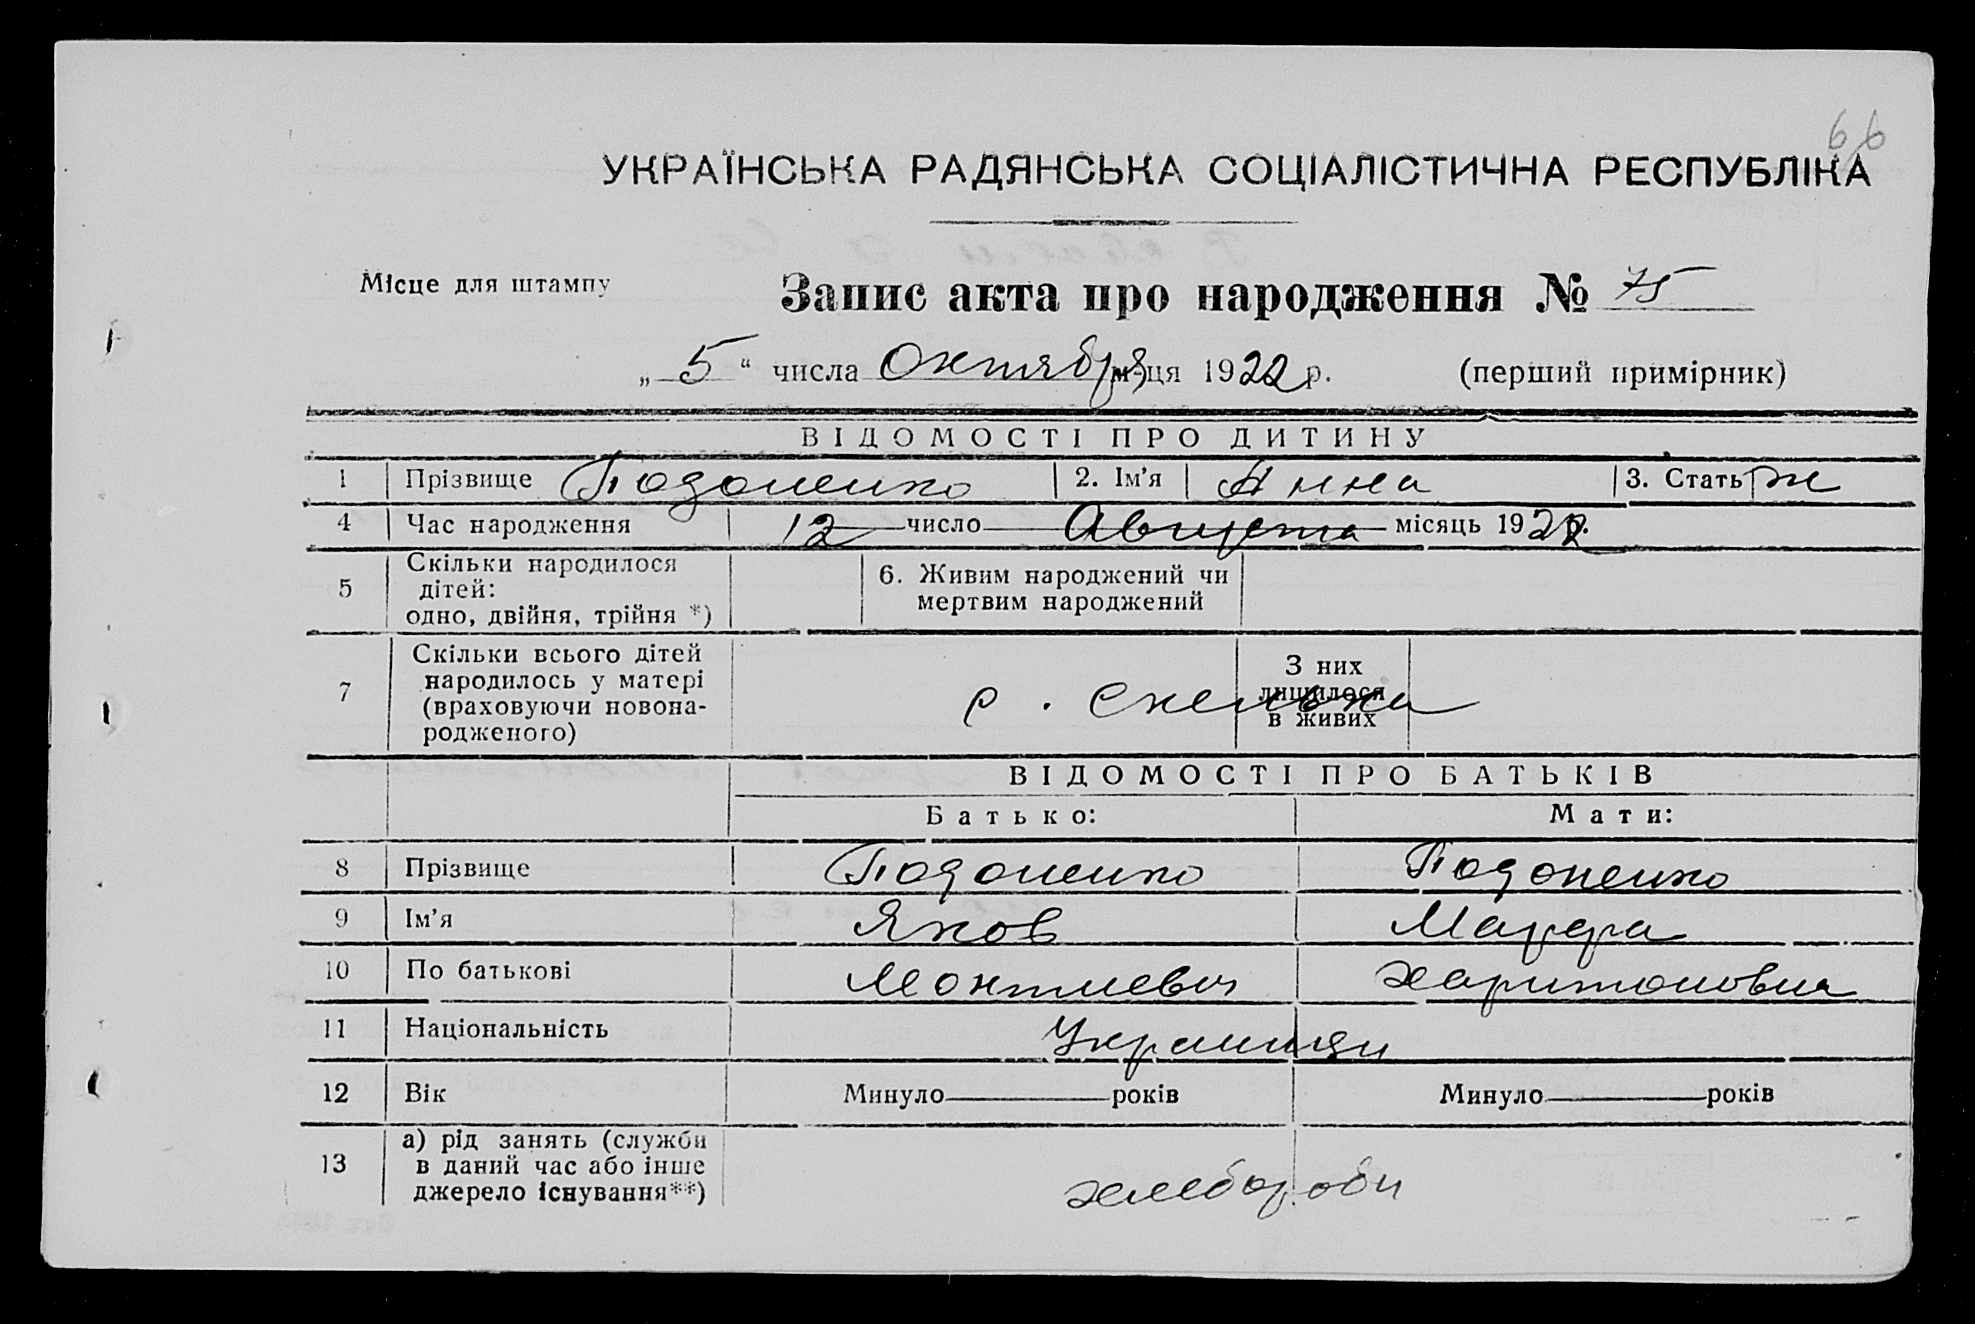 66
УКРАЇНСЬКА РАДЯНСЬКА СОЦІАЛІСТИЧНА РЕСПУБЛІКА
Місце для штампу
Запис акта про народження № 75
„ 5 “ числа Октября м-ця 1922 р. (перший примірник)
ВІДОМОСТІ ПРО ДИТИНУ
1 Прізвище Подоненко 2. Ім’я Анна 3. Стать ж
4 Час народження 12 число Августа місяць 1922 р.
5 Скільки народилося
дітей:
одно, двійня, трійня *)
6. Живим народжений чи
мертвим народжений
7 Скільки всього дітей
народилось у матері
(враховуючи новона-
родженого)
с. Скелька
З них
лишилося
в живих
ВІДОМОСТІ ПРО БАТЬКІВ
Батько: Мати:
8 Прізвище Подоненко Подоненко
9 Ім’я Яков Марфа
10 По батькові Харитоновна
11 Національність Украинцы
12 Вік Минуло років Минуло років
13 а) рід занять (служби
в даний час або інше
джерело існування**)
хлеборобы